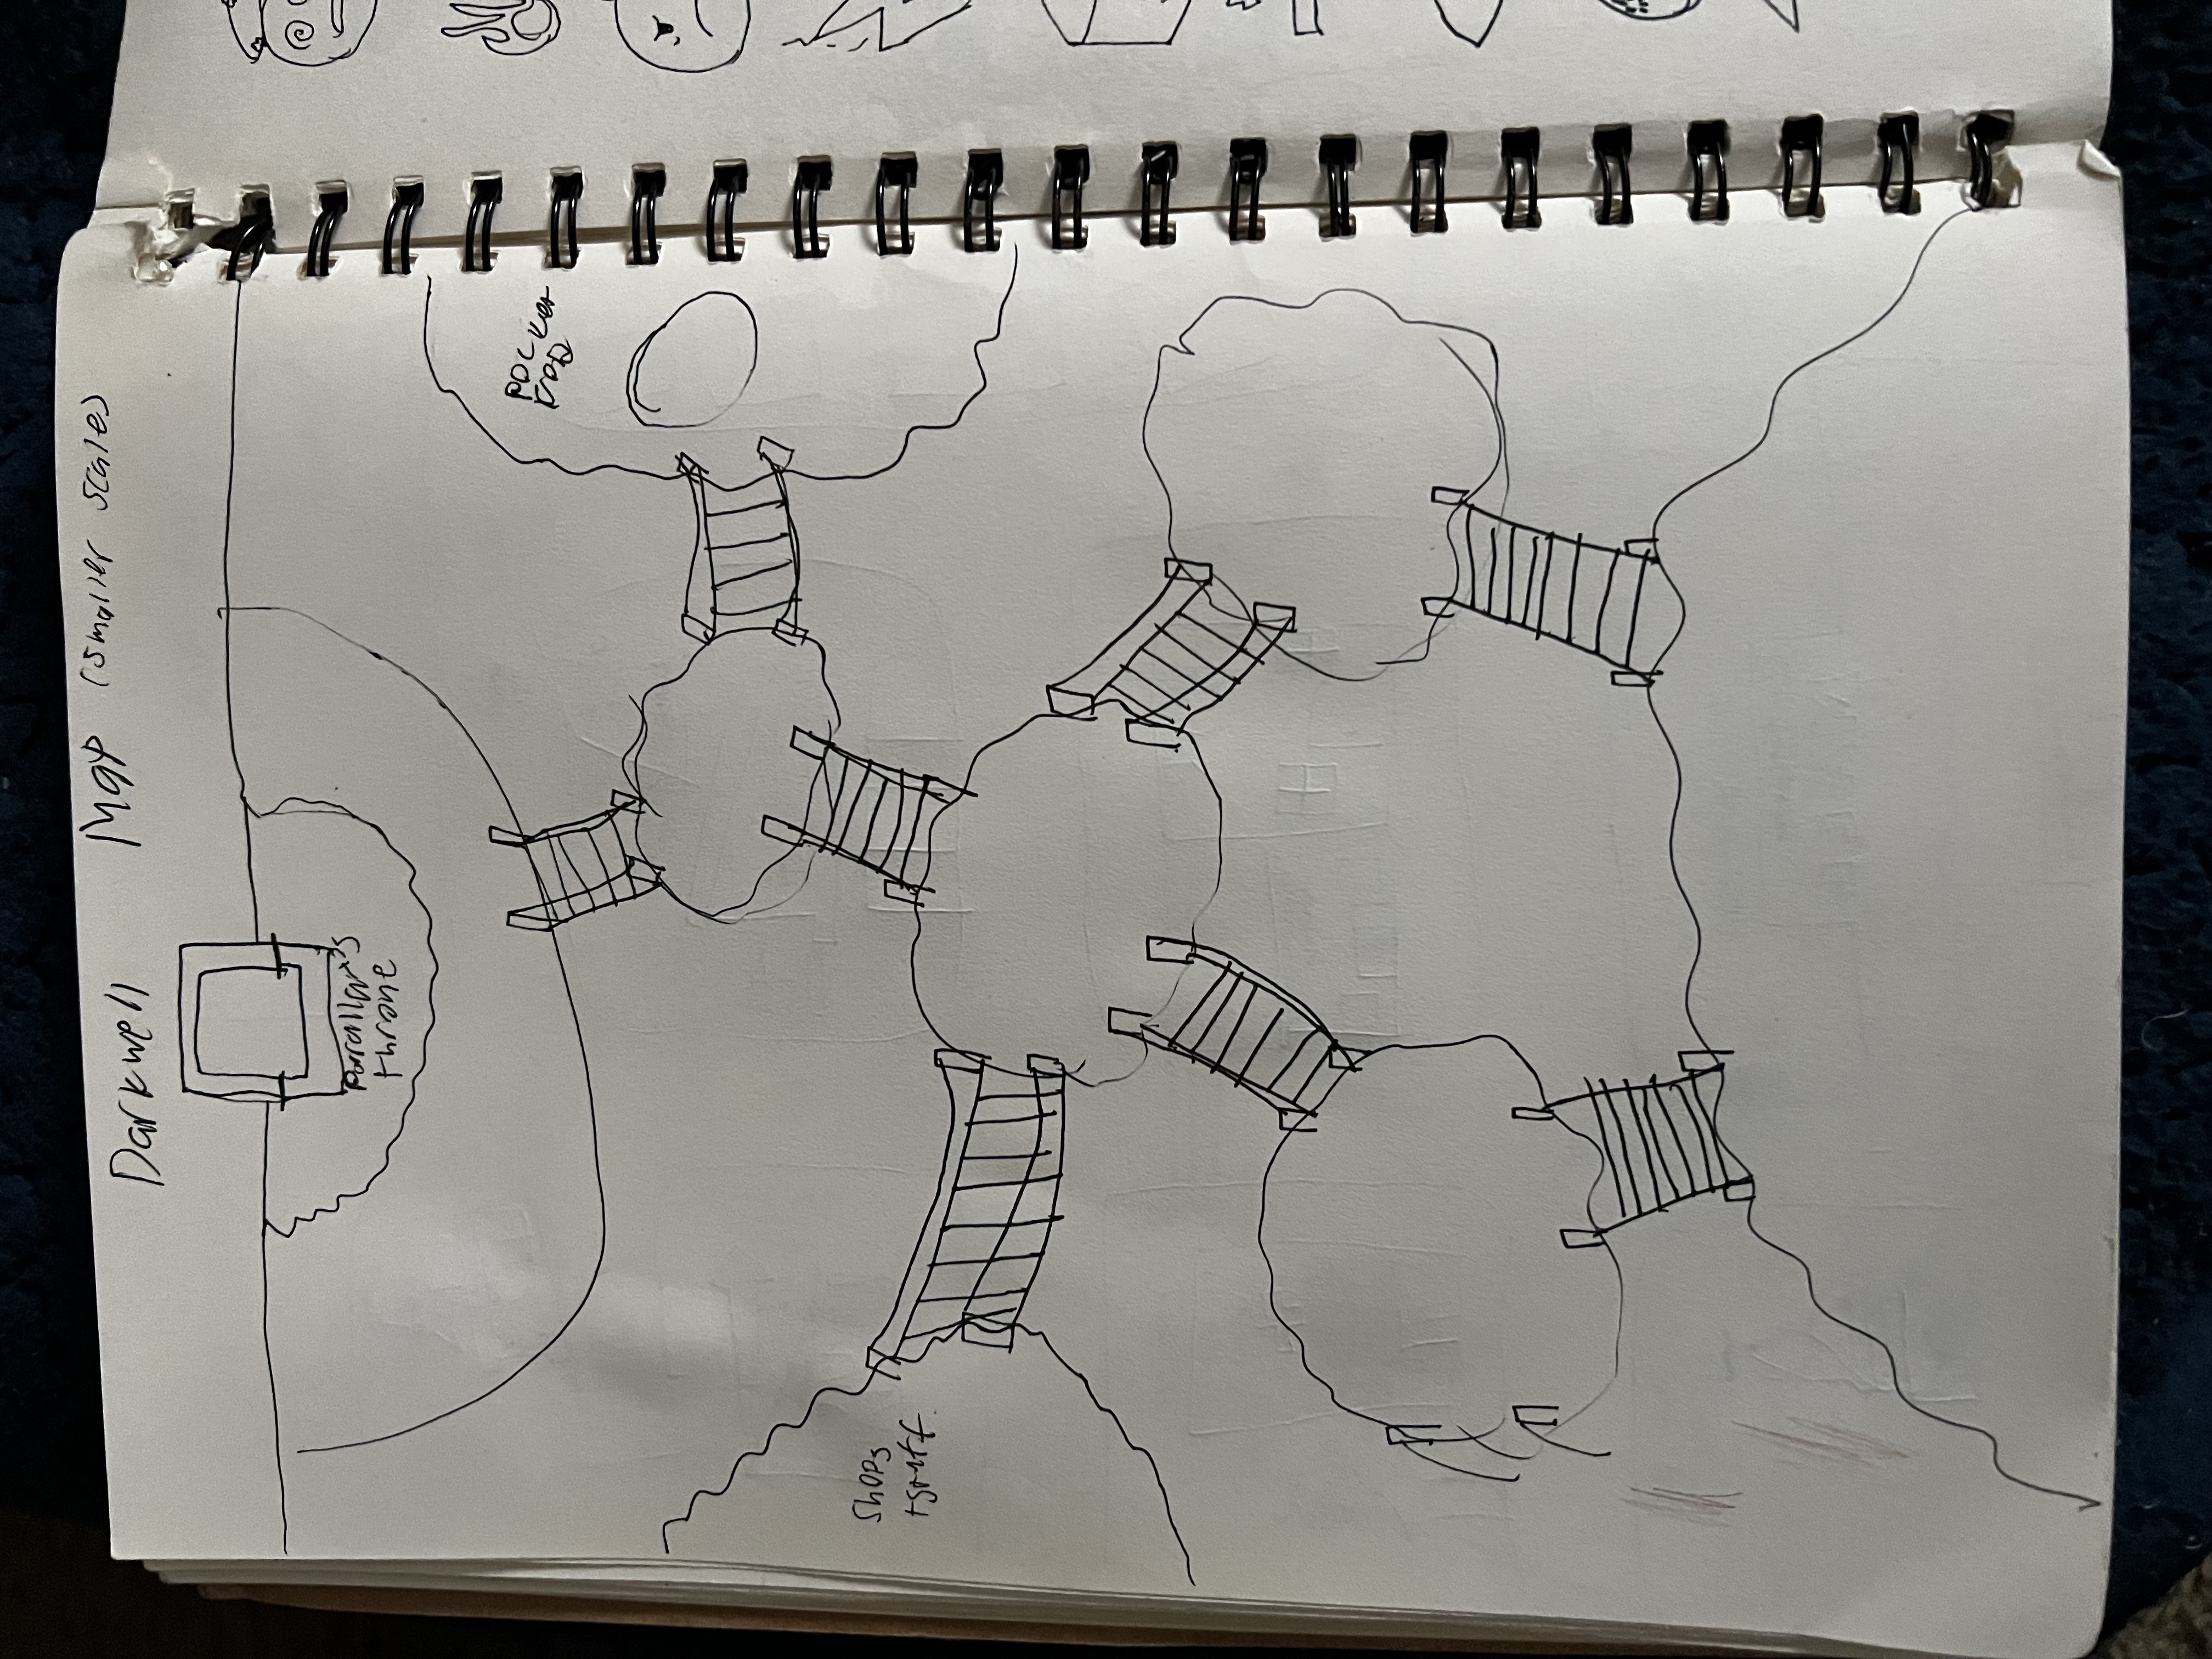 Darkwell Map (smaller scale)
Parallax's
throne
Pocket
Shops
+stuff